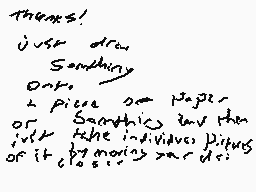 thanks!
just draw
Something
onto
a piece of paper
or Something and then
just take individual pictures
of it by moving your dsi
closer